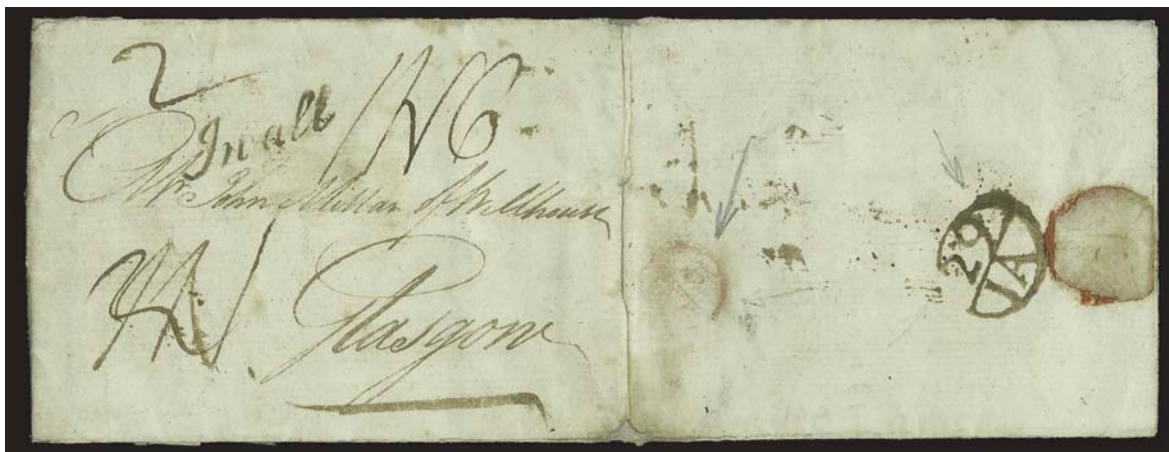 2
In all 1N6
Mr John Millar of Wellhouse
Glasgow
29
IA